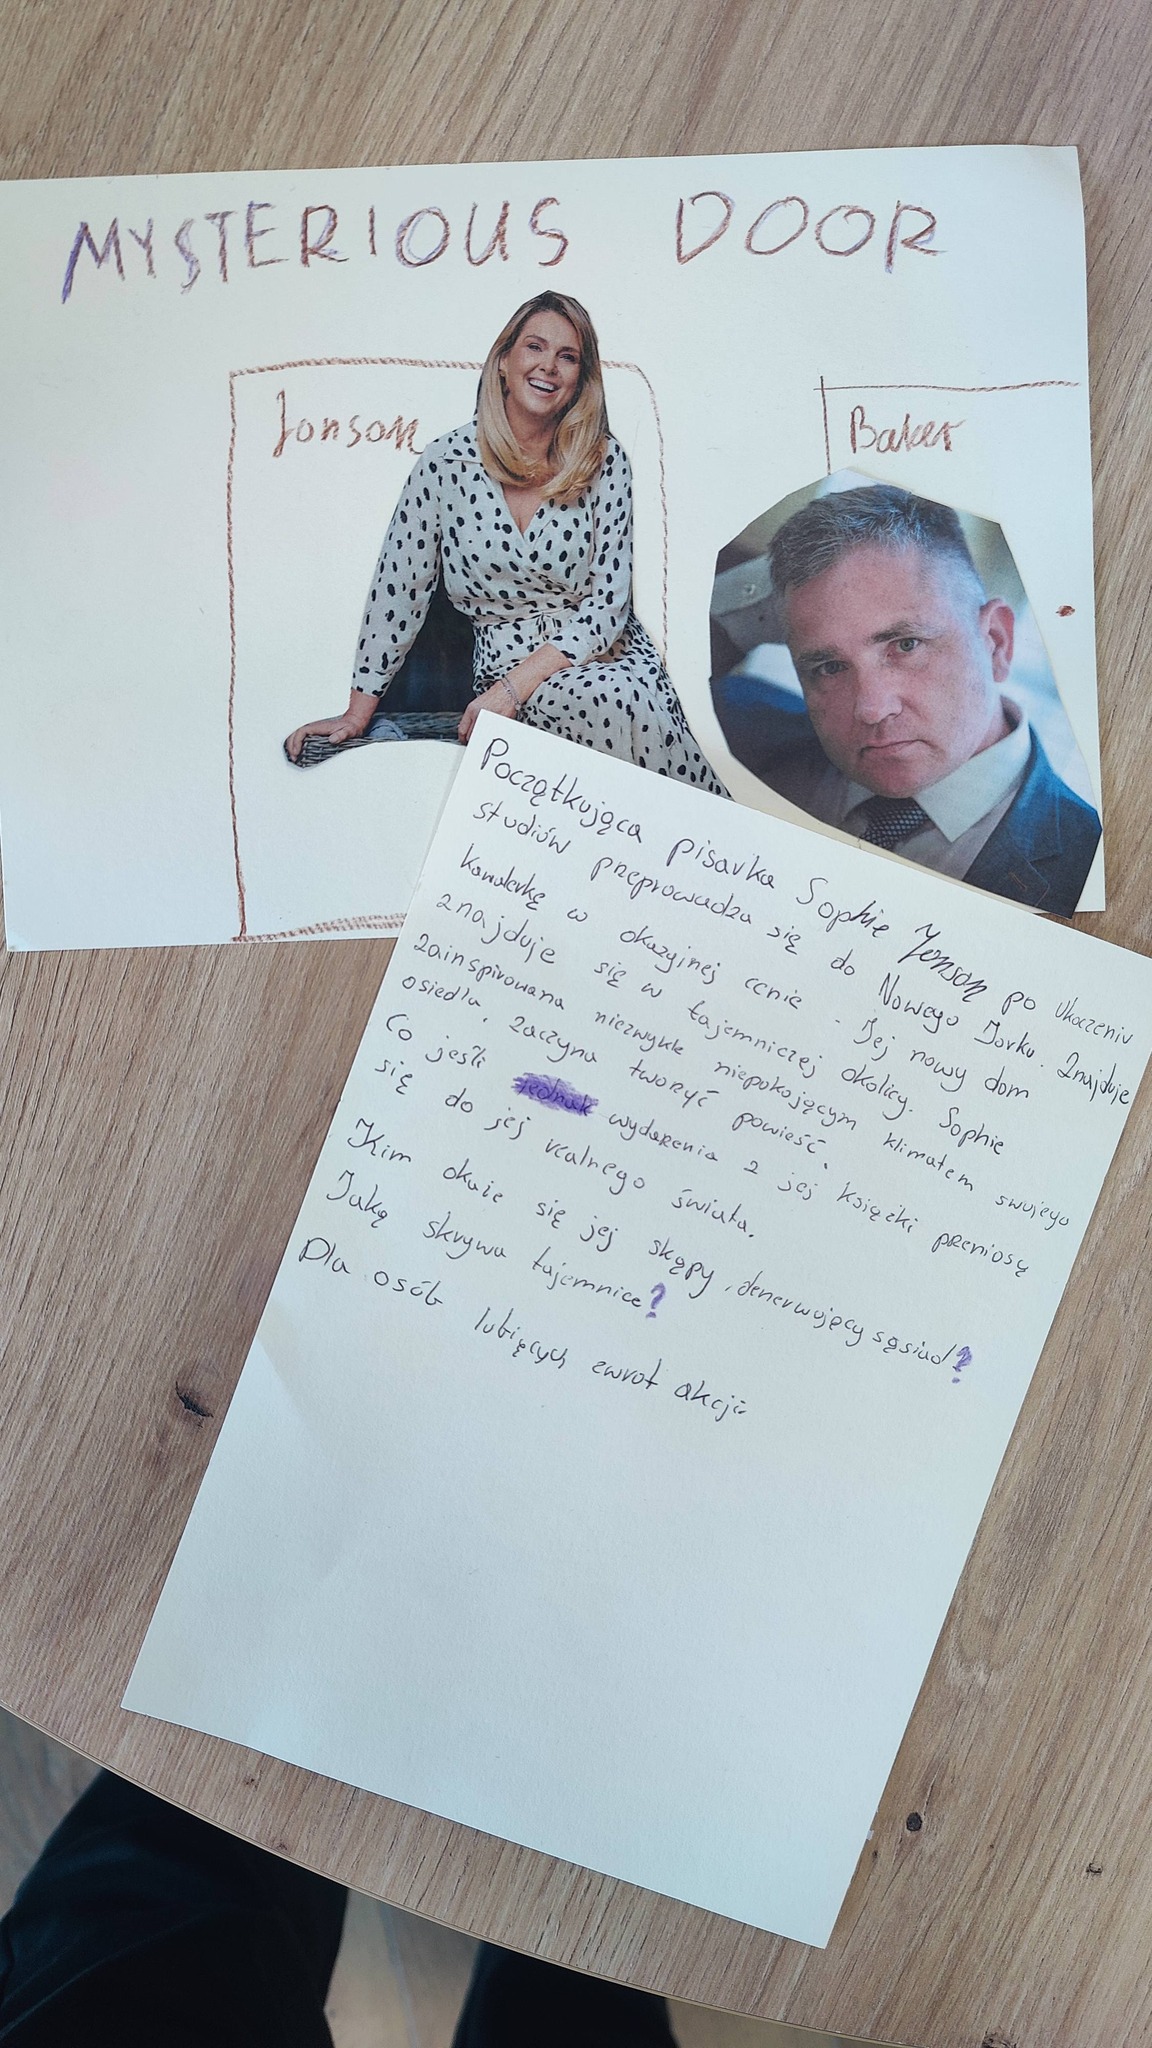 MYSTERIOUS DOOR
Jonson
Baker
Początkująca pisarka Sophie Jonson po ukaczeniu
studiów preprowadza się do Nowego Jorku. Znajduje
kawalerkę w okazyjnej cenie. Jej nowy dom
znajduje się w tajemniczej okolicy. Sophie
zainspirowana niezwykle niepokojącym klimatem swojego
osiedla, zaczyna tworzyć powieść.
Co jeśli jednak wydarenia z jej książki preniosą
się do jej realnego świata.
Kim okaże się jej skąpy, denerwujęcy sąsiad?
Jaką skrywa tajemnice?
Dla osób lubięcych zwrot akcji